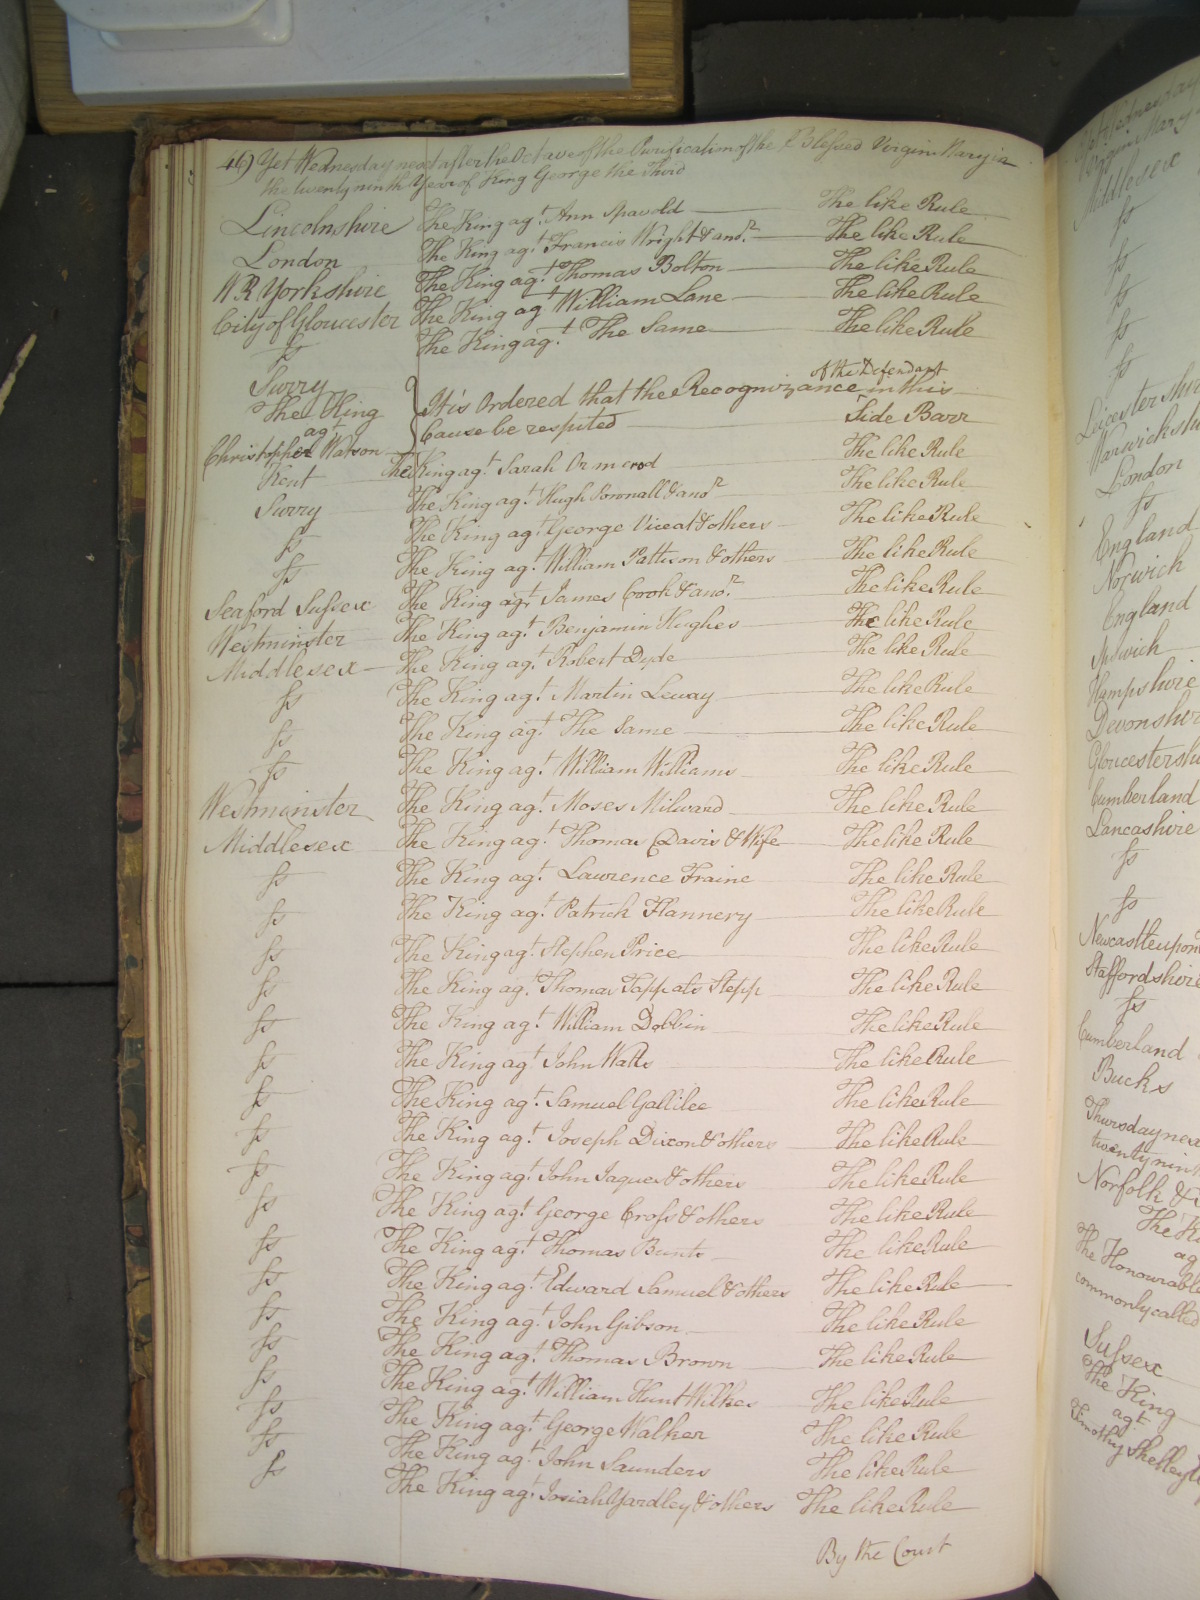 46) Yet Wednesday next after the Octave of the Purification of the Blessed Virgin Mary in
the twenty ninth Year of King George the Third
Lincolnshire The King agt. Ann Spavold The like Rule
London The King agt. Francis Wright & anor. The like Rule
W R Yorkshire The King agt. Thomas Bolton The like Rule
City of Gloucester The King agt William Lane The like Rule
ſs The King agt. The Same The like Rule
Surry
of the Defendant
The King It is Ordered that the Recognizance in this
agt
Christopher Watson Cause be respited Side Barr
Kent The King agt. Sarah Ormerod The like Rule
Surry The King agt. Hugh & anor The like Rule
ſs The King agt. George Viceat & others The like Rule
ſs The King agt. William Pattison & others The like Rule
Seaford Suſsex The King agt. James Cook & anor. The like Rule
Westminster The King agt. Benjamin Hughes The like Rule
Middlesex The King agt. Robert Dyde The like Rule
ſs The King agt. Martin Levay The like Rule
ſs The King agt. The Same The like Rule
ſs The King agt. William Williams The like Rule
Westminster The King agt. Moses Milward The like Rule
Middlesex The King agt. Thomas Davis & Wife The like Rule
ſs The King agt. Lawrence Traine The like Rule
ſs The King agt. Patrick Flannery The like Rule
ſs The King agt. Stephen Price The like Rule
ſs The King agt. Thomas Stepp The like Rule
ſs The King agt. William Dobbin The like Rule
ſs The King agt. John Watts The like Rule
ſs The King agt. Samuel Gallilee The like Rule
ſs The King agt. Joseph Dixon & others The like Rule
ſs The King agt. John Jaques & others The like Rule
ſs The King agt. George Croſs & others The like Rule
ſs The King agt. Thomas Bunts The like Rule
ſs The King agt. Edward Samuel & others The like Rule
ſs The King agt. John Gibson The like Rule
ſs The King agt. Thomas Brown The like Rule
ſs The King agt. William Hunt Wilkes The like Rule
ſs The King agt. George Walker The like Rule
ſs The King agt. John Saunders The like Rule
ſs The King agt. Josiah Yardley & others The like Rule
By the Court
Middlesex
ſs
ſs
ſs
ſs
ſs
Leicestershire
Warwickshire
London
ſs
England
Norwich
England
Ipswich
Hampshire
Devonshire
Gloucestershi
Cumberland
Lancashire
ſs
ſs
Newcastle upon
Staffordshire
ſs
Cumberland
Bucks
Thursday nex
twenty nint
Norfolk &
The Ki
ag
The Honourable
commonly called
Suſsex
The King
agt
Timothy Shelley